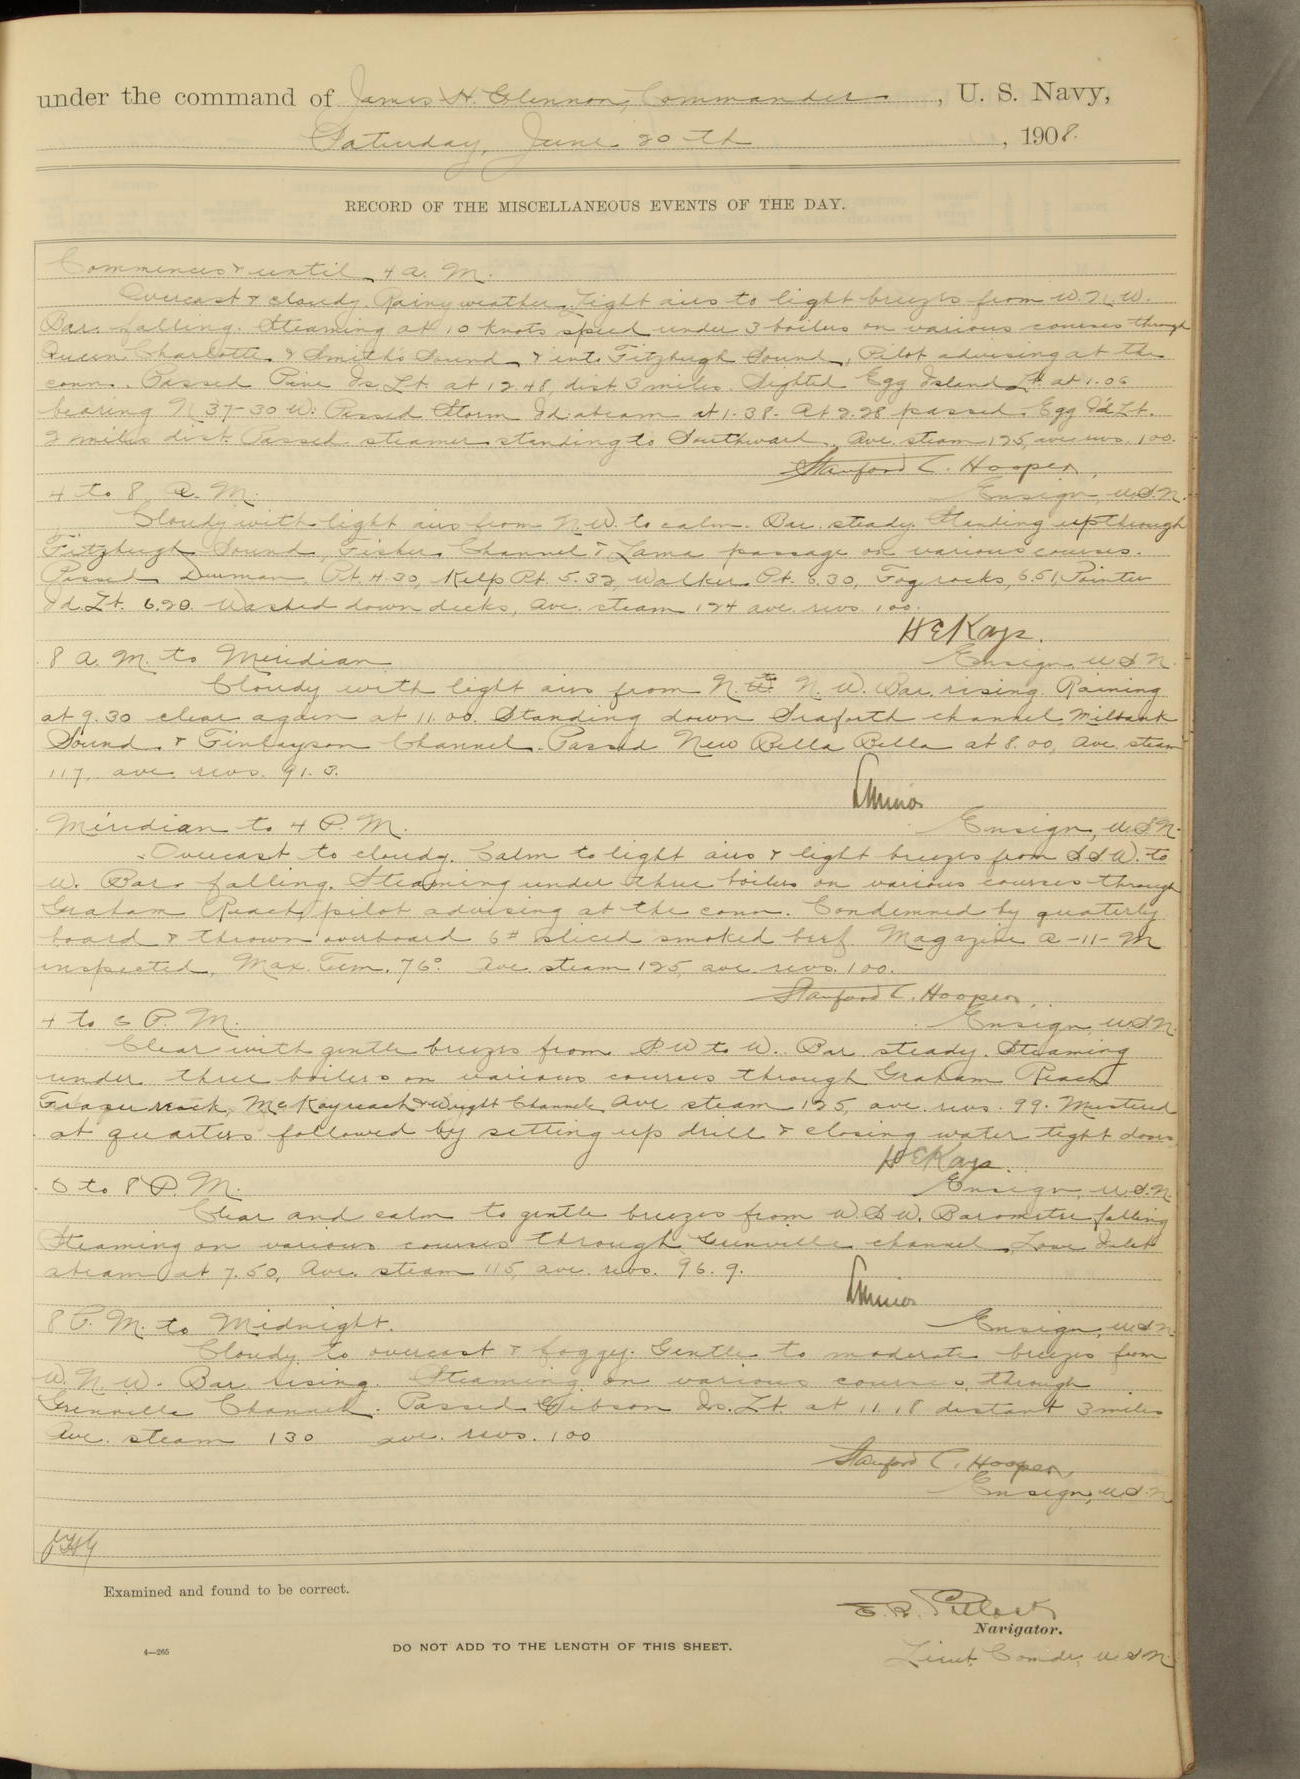 under the command of James H. Glennon, Commander, U. S. Navy,
Saturday, June 20th, 1908.
RECORD OF THE MISCELLANEOUS EVENTS OF THE DAY.
Commences & until 4 a. M.
Overcast & cloudy Rainy weather. Light airs to light breezes from W.N.W.
Bar. falling. Steaming at 10 knots speed under 3 boilers on various courses through
Queen Charlotte & Smith's Sound & into Fitzhugh Sound, Pilot advising at the
conn. Passed Pine Is. Lt. at 12.48, dist 3 miles. Sighted Egg Island Lt. at 1.06
bearing N 37-30 W. Passed Storm Id. abeam at 1.38. At 2.28 passed Egg Id Lt.
2 miles dist. Passed steamer standing to Southward. Ave. steam 125, ave revs. 100.
Stanford C. Hooper,
4 to 8 A. M. Ensign U.S.N.
Cloudy with light airs from N.W. to calm. Bar. steady. Standing up through
Fitzhugh Sound, Fisher Channel & Lama passage on various courses.
Passed Denman Pt. 4.30, Kelp Pt. 5.32, Walker Pt. 6.30, Fog rocks, 6.51, Pointer
Id. Lt. 6.20. Washed down decks, Ave. steam 124 ave. revs. 100.
H E Kays.
8 a. M. to Meridian Ensign, U S N.
Cloudy with light airs from N. to N. W. Bar. rising. Raining
at 9.30 clear again at 11.00. Standing down Seaforth channel, Milbank
Sound & Finlayson Channel. Passed New Bella Bella at 8.00, Ave. steam
117, ave. revs. 91.3.
Meridian to 4 P. M. Ensign, U.S.N.
Overcast to cloudy. Calm to light airs & light breezes from S S W. to
W. Bar. falling. Steaming under three boilers on various courses through
Graham Reach, pilot advising at the conn. Condemned by quaterly
board & thrown overboard 6# sliced smoked beef. Magazine A-11-M
inspected, Max. Tem. 76°. Ave steam 125, ave. revs. 100.
Stanford C. Hooper,
4 to 6 P. M. Ensign, U.S.N.
Clear with gentle breezes from S W to W. Bar steady. Steaming
under three boilers on various courses through Graham Reach
Fraser reach, McKay reach & Wright Channel. Ave steam 125, ave. revs. 99. Mustered
at quarters followed by setting up drill & closing water tight doors
H E Kays.
6 to 8 P. M. Ensign, U.S.N.
Clear and calm to gentle breezes from W. S W. Barometer falling
Steaming on various courses through Grenville channel, Lowe Inlet
abeam at 7.50, Ave. steam 115, ave. revs. 96.9.
8 P. M. to Midnight. Ensign, U.S.N.
Cloudy to overcast & foggy. Gentle to moderate breezes from
W. N. W. Bar rising. Steaming on various courses through
Grenville Channel. Passed Gibson Is. Lt. at 11.18 distant 3 miles
Ave. steam 130 ave. revs. 100
Stanford C. Hooper,
Ensign, U.S.N.
Examined and found to be correct.
Navigator.
4—265
DO NOT ADD TO THE LENGTH OF THIS SHEET.
Lieut. Comdr, U S N.